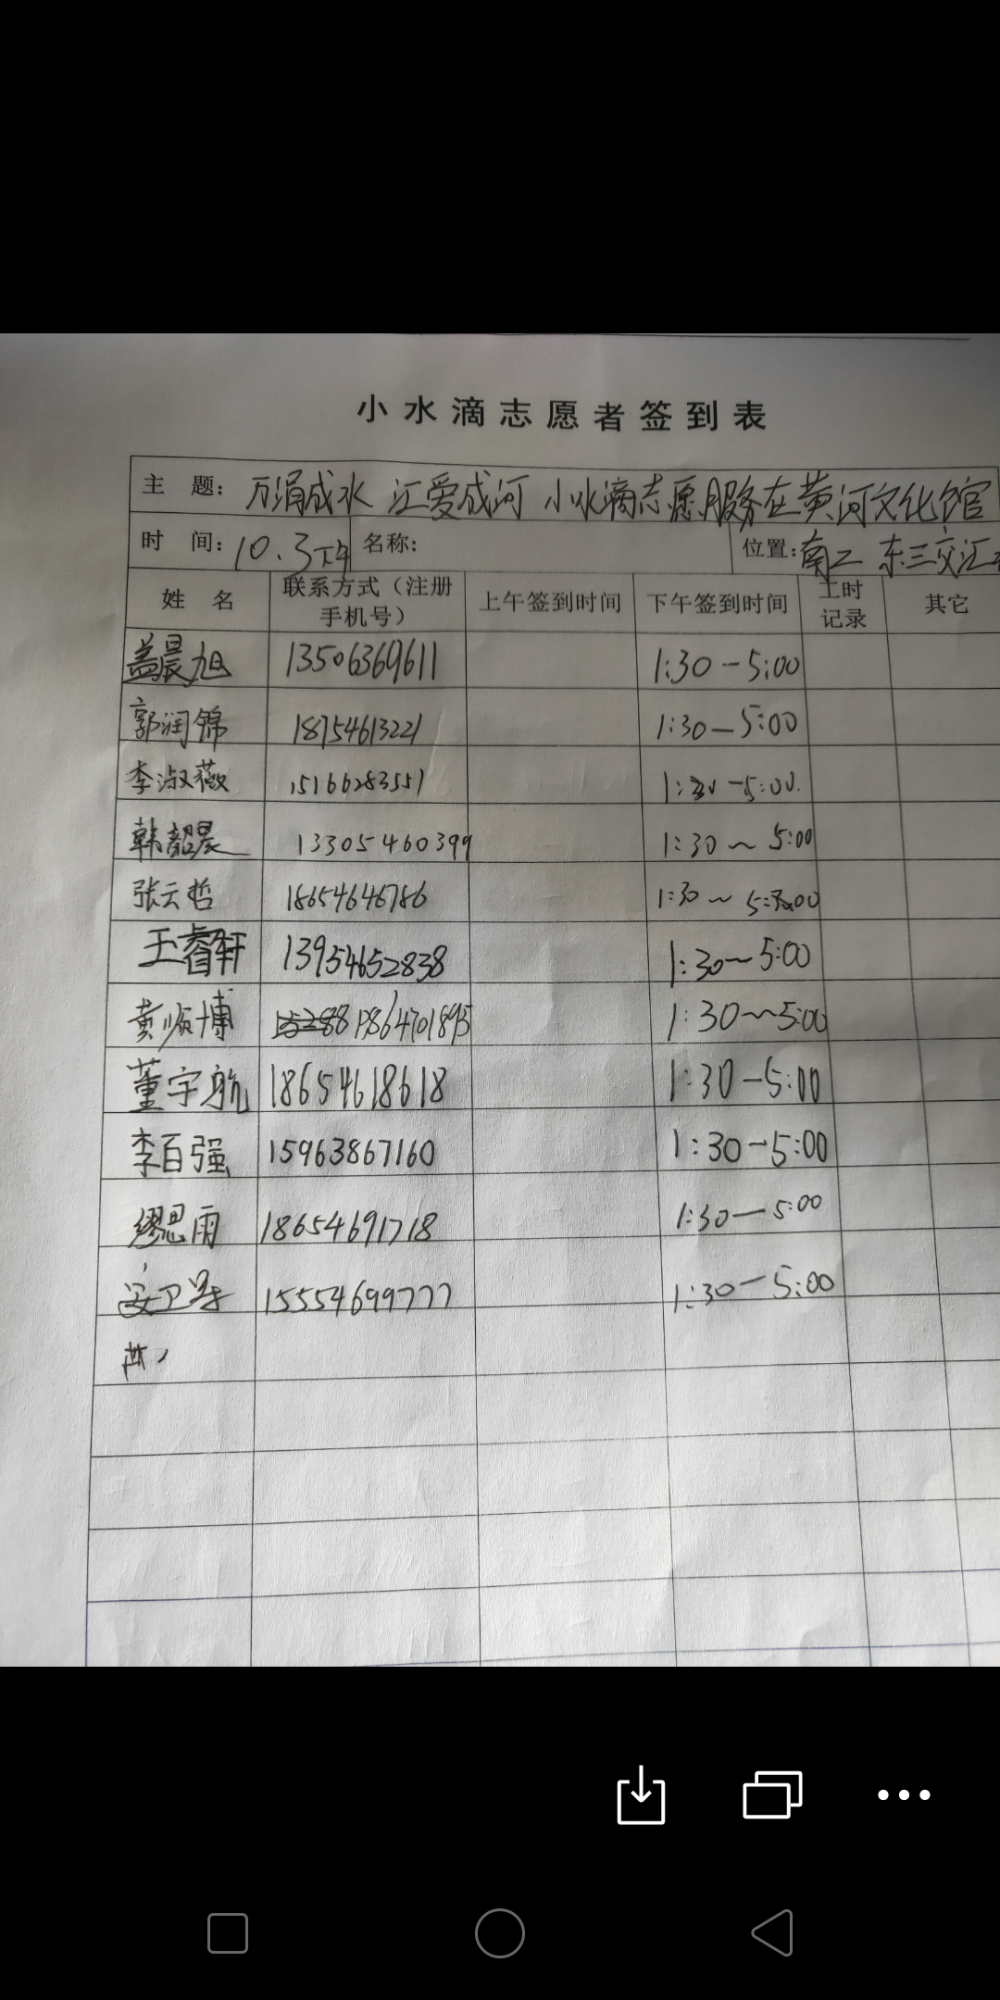 小水滴志愿者签到表
主 题：万涓成水 汇爱成河 小水滴志愿服务在黄河文化馆
时 间：10.3下午 名称： 位置：南二 东三交汇
姓 名 联系方式（注册手机号） 上午签到时间 下午签到时间 工时记录 其它
盖晨旭 13506369611 1:30-5:00
郭润锦 18754613221 1:30-5:00
李淑薇 15166283551 1:30-5:00.
韩韶昊 13305460399 1:30~5:00
张云哲 18654646786 1:30~5:00
王睿轩 13954652838 1:30~5:00
黄顺博 19864701895 1:30~5:00
董宇航 18654618618 1:30-5:00
李百强 15963867160 1:30-5:00
缪思雨 18654691718 1:30-5:00
15554699777 1:30-5:00